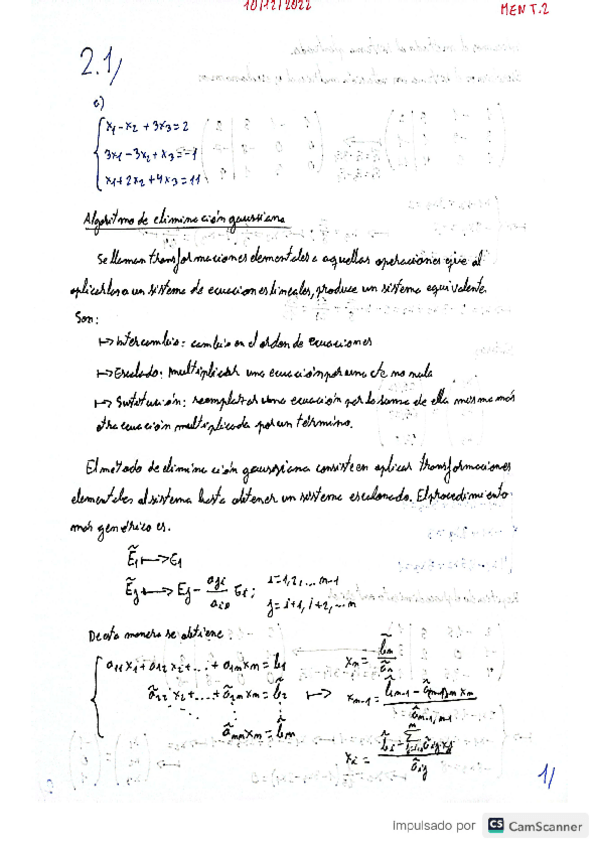 10/12/2022
MEN T.2
2.1/
a)
x1 - x2 + 3x3 = 2
3x1 - 3x2 + x3 = -1
x1 + 2x2 + 4x3 = 11
Algoritmo de eliminación gaussiana
Se llaman transformaciones elementales a aquellas operaciones que al
aplicarlas a un sistema de ecuaciones lineales, produce un sistema equivalente.
Son:
↦ Intercambio: cambio en el orden de ecuaciones
↦ Escalado: multiplicar una ecuación por una cte no nula
↦ Sustitución: reemplazar una ecuación por la suma de ella misma más
otra ecuación multiplicada por un término.
El método de eliminación gaussiana consiste en aplicar transformaciones
elementales al sistema hasta obtener un sistema escalonado. El procedimiento
más genérico es.
Ẽ1 ↦ E1
Ẽj ↦ Ej - aji/aii Ei; i=1,2,...n-1
j=i+1, i+2,...n
De esta manera se obtiene:
a11x1 + a12x2 + ... + a1nxn = b1
ã22x2 + ... + ã2nxn = b̃2
ãnnxn = b̃n
↦
1/
Impulsado por CS CamScanner